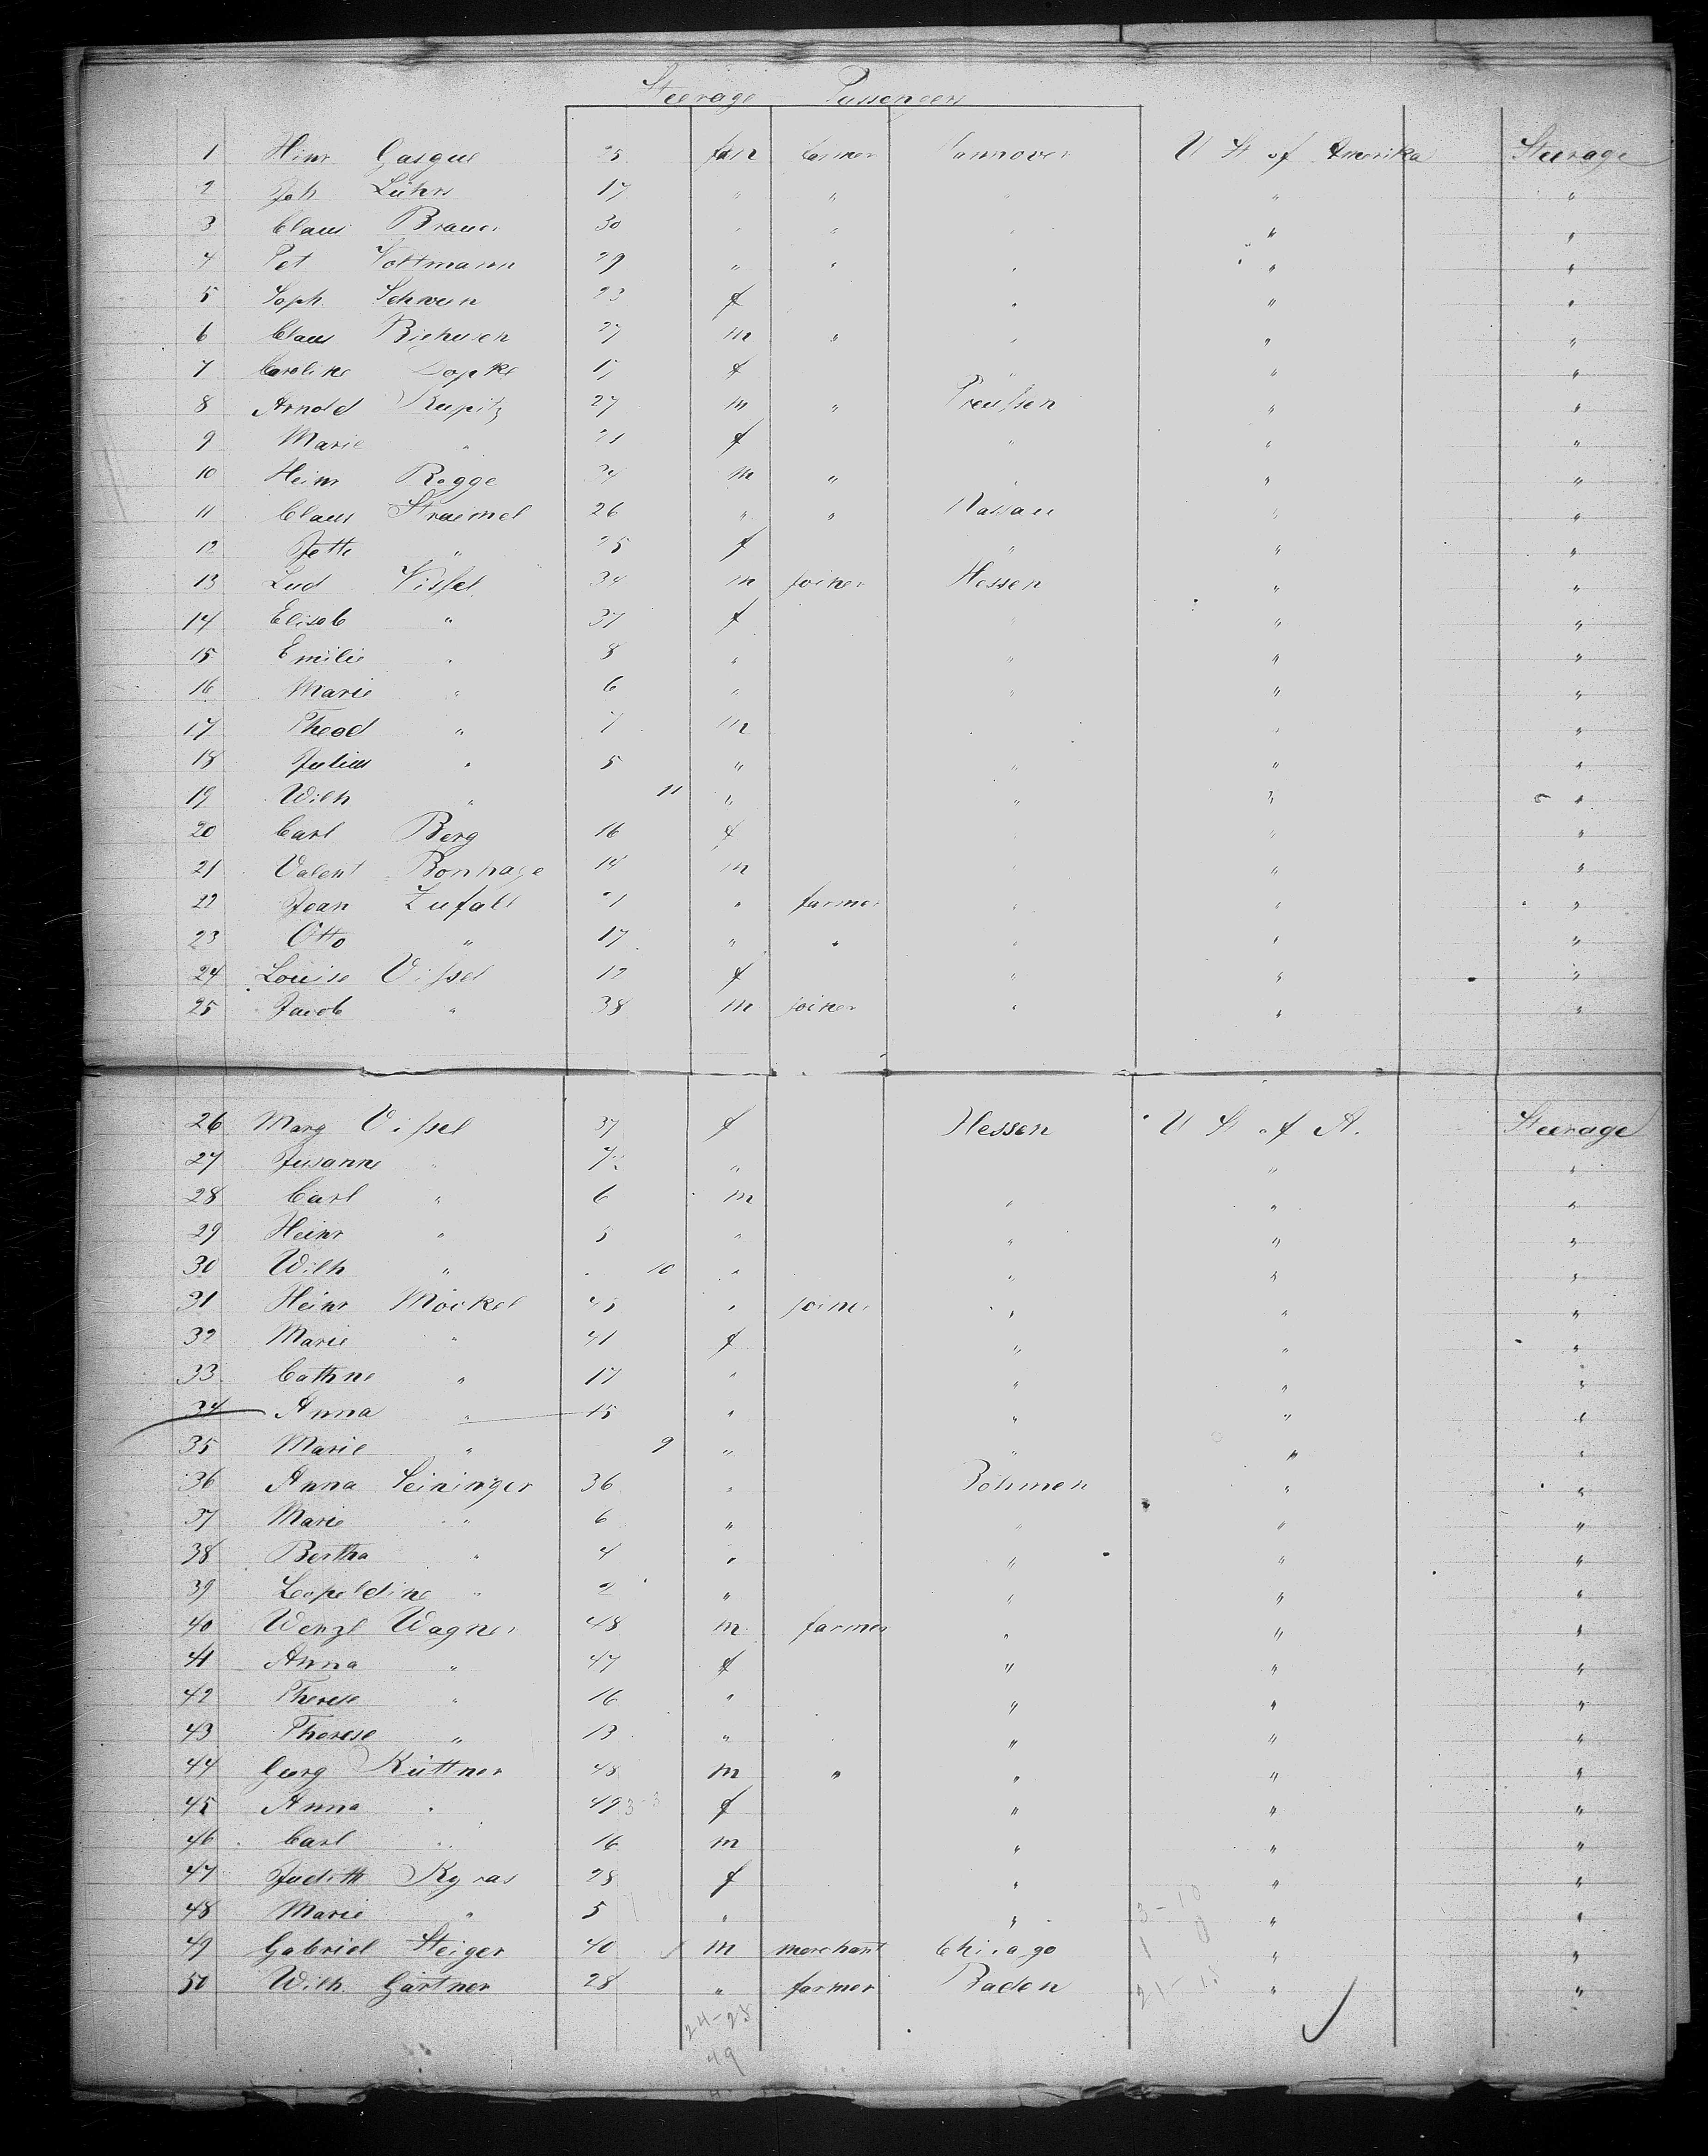 Steerage Passengers
1 Heinr Gasque 25 m farmer Hannover U St of Amerika Steerage
2 Joh Lührs 17 " " " " "
3 Claus Brauer 30 " " " " "
4 Pet Voltmann 29 " " " " "
5 Soph. 23 f " " "
6 Claus 27 m " " " "
7 Caroline Dopke 17 f " " "
8 Arnold Kupitz 27 m " Preußen " "
9 Marie " 21 f " " "
10 Heinr Rogge 34 m " " " "
11 Claus Straimel 26 " " Nassau " "
12 Jette " 25 f " " "
13 Lud Vissel 34 m joiner Hessen " "
14 Elisab " 37 f " " "
15 Emilie " 8 " " " "
16 Marie " 6 " " " "
17 Theod " 7 m " "
18 Julius " 5 " " " "
19 Wilh " 11 " " " "
20 Carl Berg 16 f " " "
21 Valent Bonhage 14 m " " "
22 Jean Zufall 21 " farmer " " "
23 Otto " 17 " " " " "
24 Louise Vissel 12 f " " "
25 Jacob " 38 m joiner " " "
26 Marg Vissel 37 f Hessen U St of A. Steerage
27 Susanne " 7 " " "
28 Carl " 6 m " " "
29 Heinr " 5 " " " "
30 Wilh " 10 " " " "
31 Heinr Möckel 45 " joiner " " "
32 Marie " 41 f " " "
33 Cathne " 17 " " " "
34 Anna " 15 " " " "
35 Marie " 9 " " " "
36 Anna Leininger 36 " Böhmen " "
37 Marie " 6 " " " "
38 Bertha " 4 " " " "
39 Leopoldine " 2 " " " "
40 Wenzl Wagner 48 m farmer " " "
41 Anna " 47 f " " "
42 Therese " 16 " " " "
43 Therese " 13 " " " "
44 Georg Küttner 48 m " " " "
45 Anna " 49 f " " "
46 Carl " 16 m " " "
47 Judith 28 f " " "
48 Marie " 5 " " " "
49 Gabriel Steiger 40 m merchant Chicago " "
50 Wilh. Gärtner 28 " farmer Baden " "
24-25
49